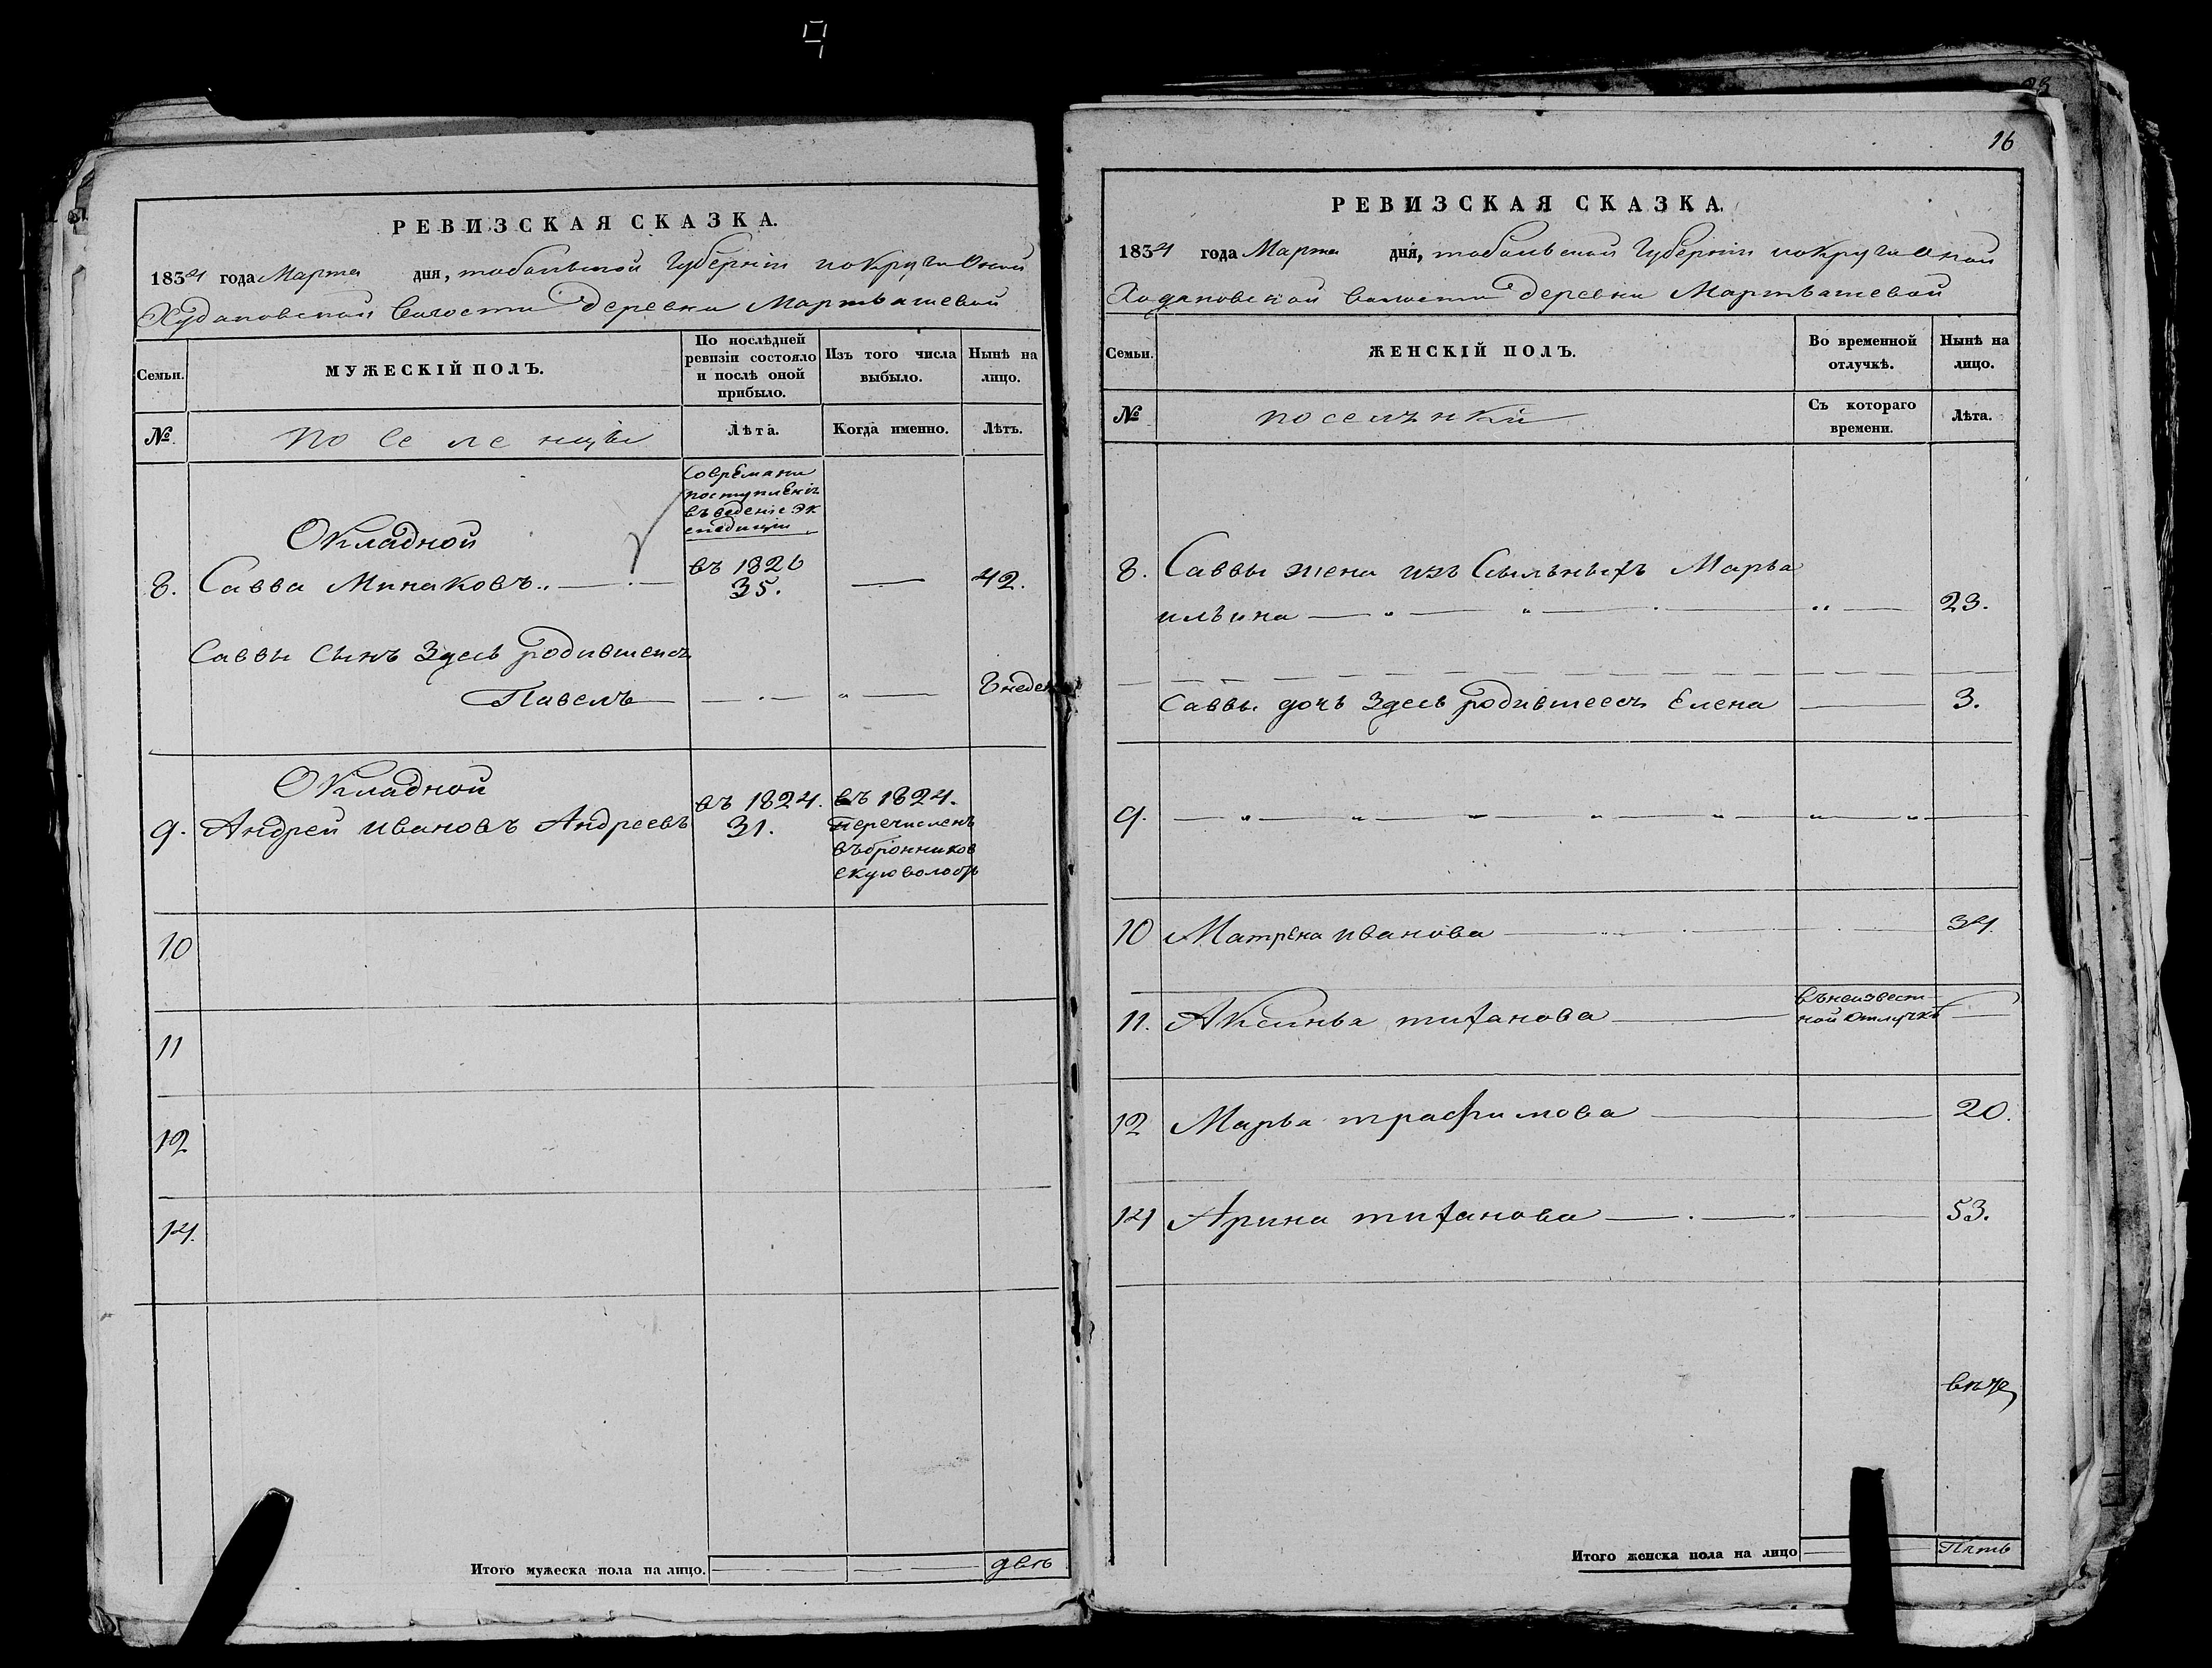 РЕВИЗСКАЯ СКАЗКА.
1834 года Марта дня, тобольской Губернiи покругу Оной
Худаковской Волости Деревни Мартьашевой
Семьи.
МУЖЕСКIЙ ПОЛЪ.
По послѣдней ревизiи состояло и послѣ оной прибыло.
Изъ того числа выбыло.
Нынѣ на лицо.
№
поселенцы
Лѣта.
Когда именно.
Лѣтъ.
Современи
поступленiя
въведенiе эк
спедицiи
Окладной
въ 1826
8. Савва Минаковъ 35. 42.
Саввы Сынъ Здесь родившейся
Павелъ недель
Окладной
въ 1824. въ 1824.
9. Андрей Ивановъ Андреевъ 31. перечисленъ
въбронников
скую волость
10
11
12
14.
Итого мужеска пола на лицо. двѣ
16
РЕВИЗСКАЯ СКАЗКА.
1834 года Марта дня, тобольской Губернiи покругу Оной
волости Деревни Мартьашевой
Семьи.
ЖЕНСКIЙ ПОЛЪ.
Во временной отлучкѣ.
Нынѣ на лицо.
№
поселѣнки
Съ котораго времени.
Лѣта.
8. Саввы жена изъ Сыльныхъ Марья
ильина 23.
Саввы дочь Здесь родившеесъ Елена 3.
9.
10 Матрена иванова 34.
11. Аксинья тиханова вънеизвест
ной Отлучкѣ
12 Марья трафимова 20.
14 Арина тиханова 53.
Итого женска пола на лицо Пять